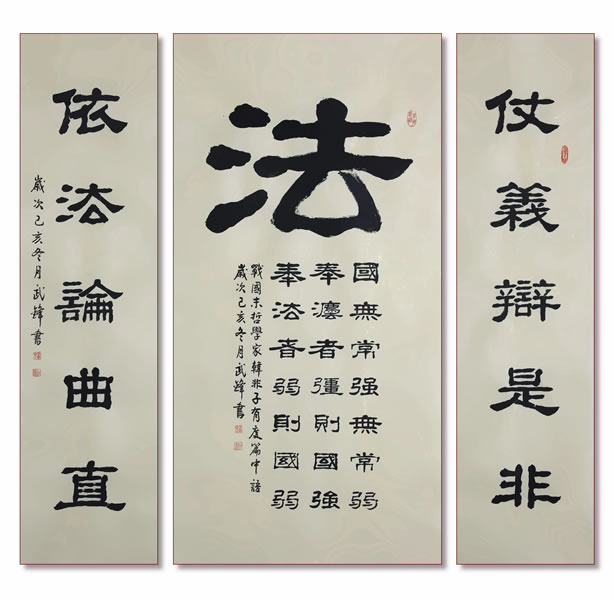 仗義辯是非
法
國無常强無常弱
奉灋者彊則國強
奉法者弱則國弱
戰國末哲學家韓非子有度篇中語
歲次己亥冬月武鋒書
依法論曲直
歲次己亥冬月武鋒書